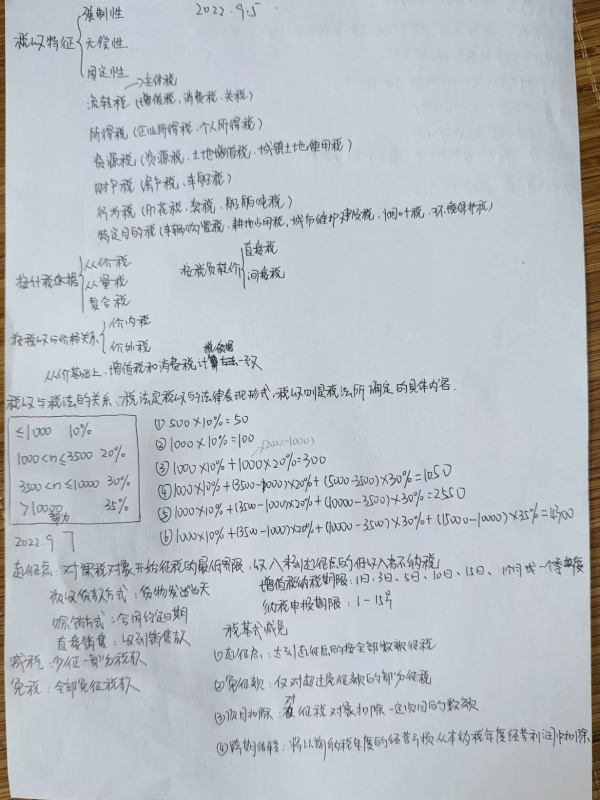 2022.9.5
税收特征 强制性
无偿性
固定性
→主体税
流转税（增值税、消费税、关税）
所得税（企业所得税、个人所得税）
资源税（资源税、土地增值税、城镇土地使用税）
财产税（房产税、车船税）
行为税（印花税、契税、船舶吨税）
特定目的税（车辆购置税、耕地占用税、城市维护建设税、烟叶税、环境保护税）
按计税依据 从价税
从量税
复合税
按税负转价 直接税
间接税
按税收与价格关系 价内税
价外税
税依据
从价基础上，增值税和消费税计算方法一致
税收与税法的关系、税法是税收的法律表现形式，税收则是税法所确定的具体内容.
≤1000 10%
1000<n≤3500 20%
3500<n≤10000 30%
>10000 35%
部分
① 500×10%=50
② 1000×10%=100
(2000-1000)
③ 1000×10%+1000×20%=300
④ 1000×10%+(3500-1000)×20%+(5000-3500)×30%=1050
⑤ 1000×10%+(3500-1000)×20%+(10000-3500)×30%=2550
⑥ 1000×10%+(3500-1000)×20%+(10000-3500)×30%+(15000-10000)×35%=4300
2022.9 7
起征点：对课税对象开始征税的最低界限，收入未到起征点的低收入者不纳税
预收货款方式：货物发出当天
赊销方式：合同约定日期
直接销售：收到销售款
增值税纳税期限：1日、3日、5日、10日、15日、1个月或一个季度
纳税申报期限：1-15号
减税：少征一部分税款
免税：全部免征税款
税基式减免
①起征点：达到起征点的按全部数额征税
②免征额：仅对超过免征额的部分征税
③项目扣除：对征税对象扣除一定项目的数额
④跨期结转：将以前纳税年度的经营亏损从本纳税年度经营利润中扣除